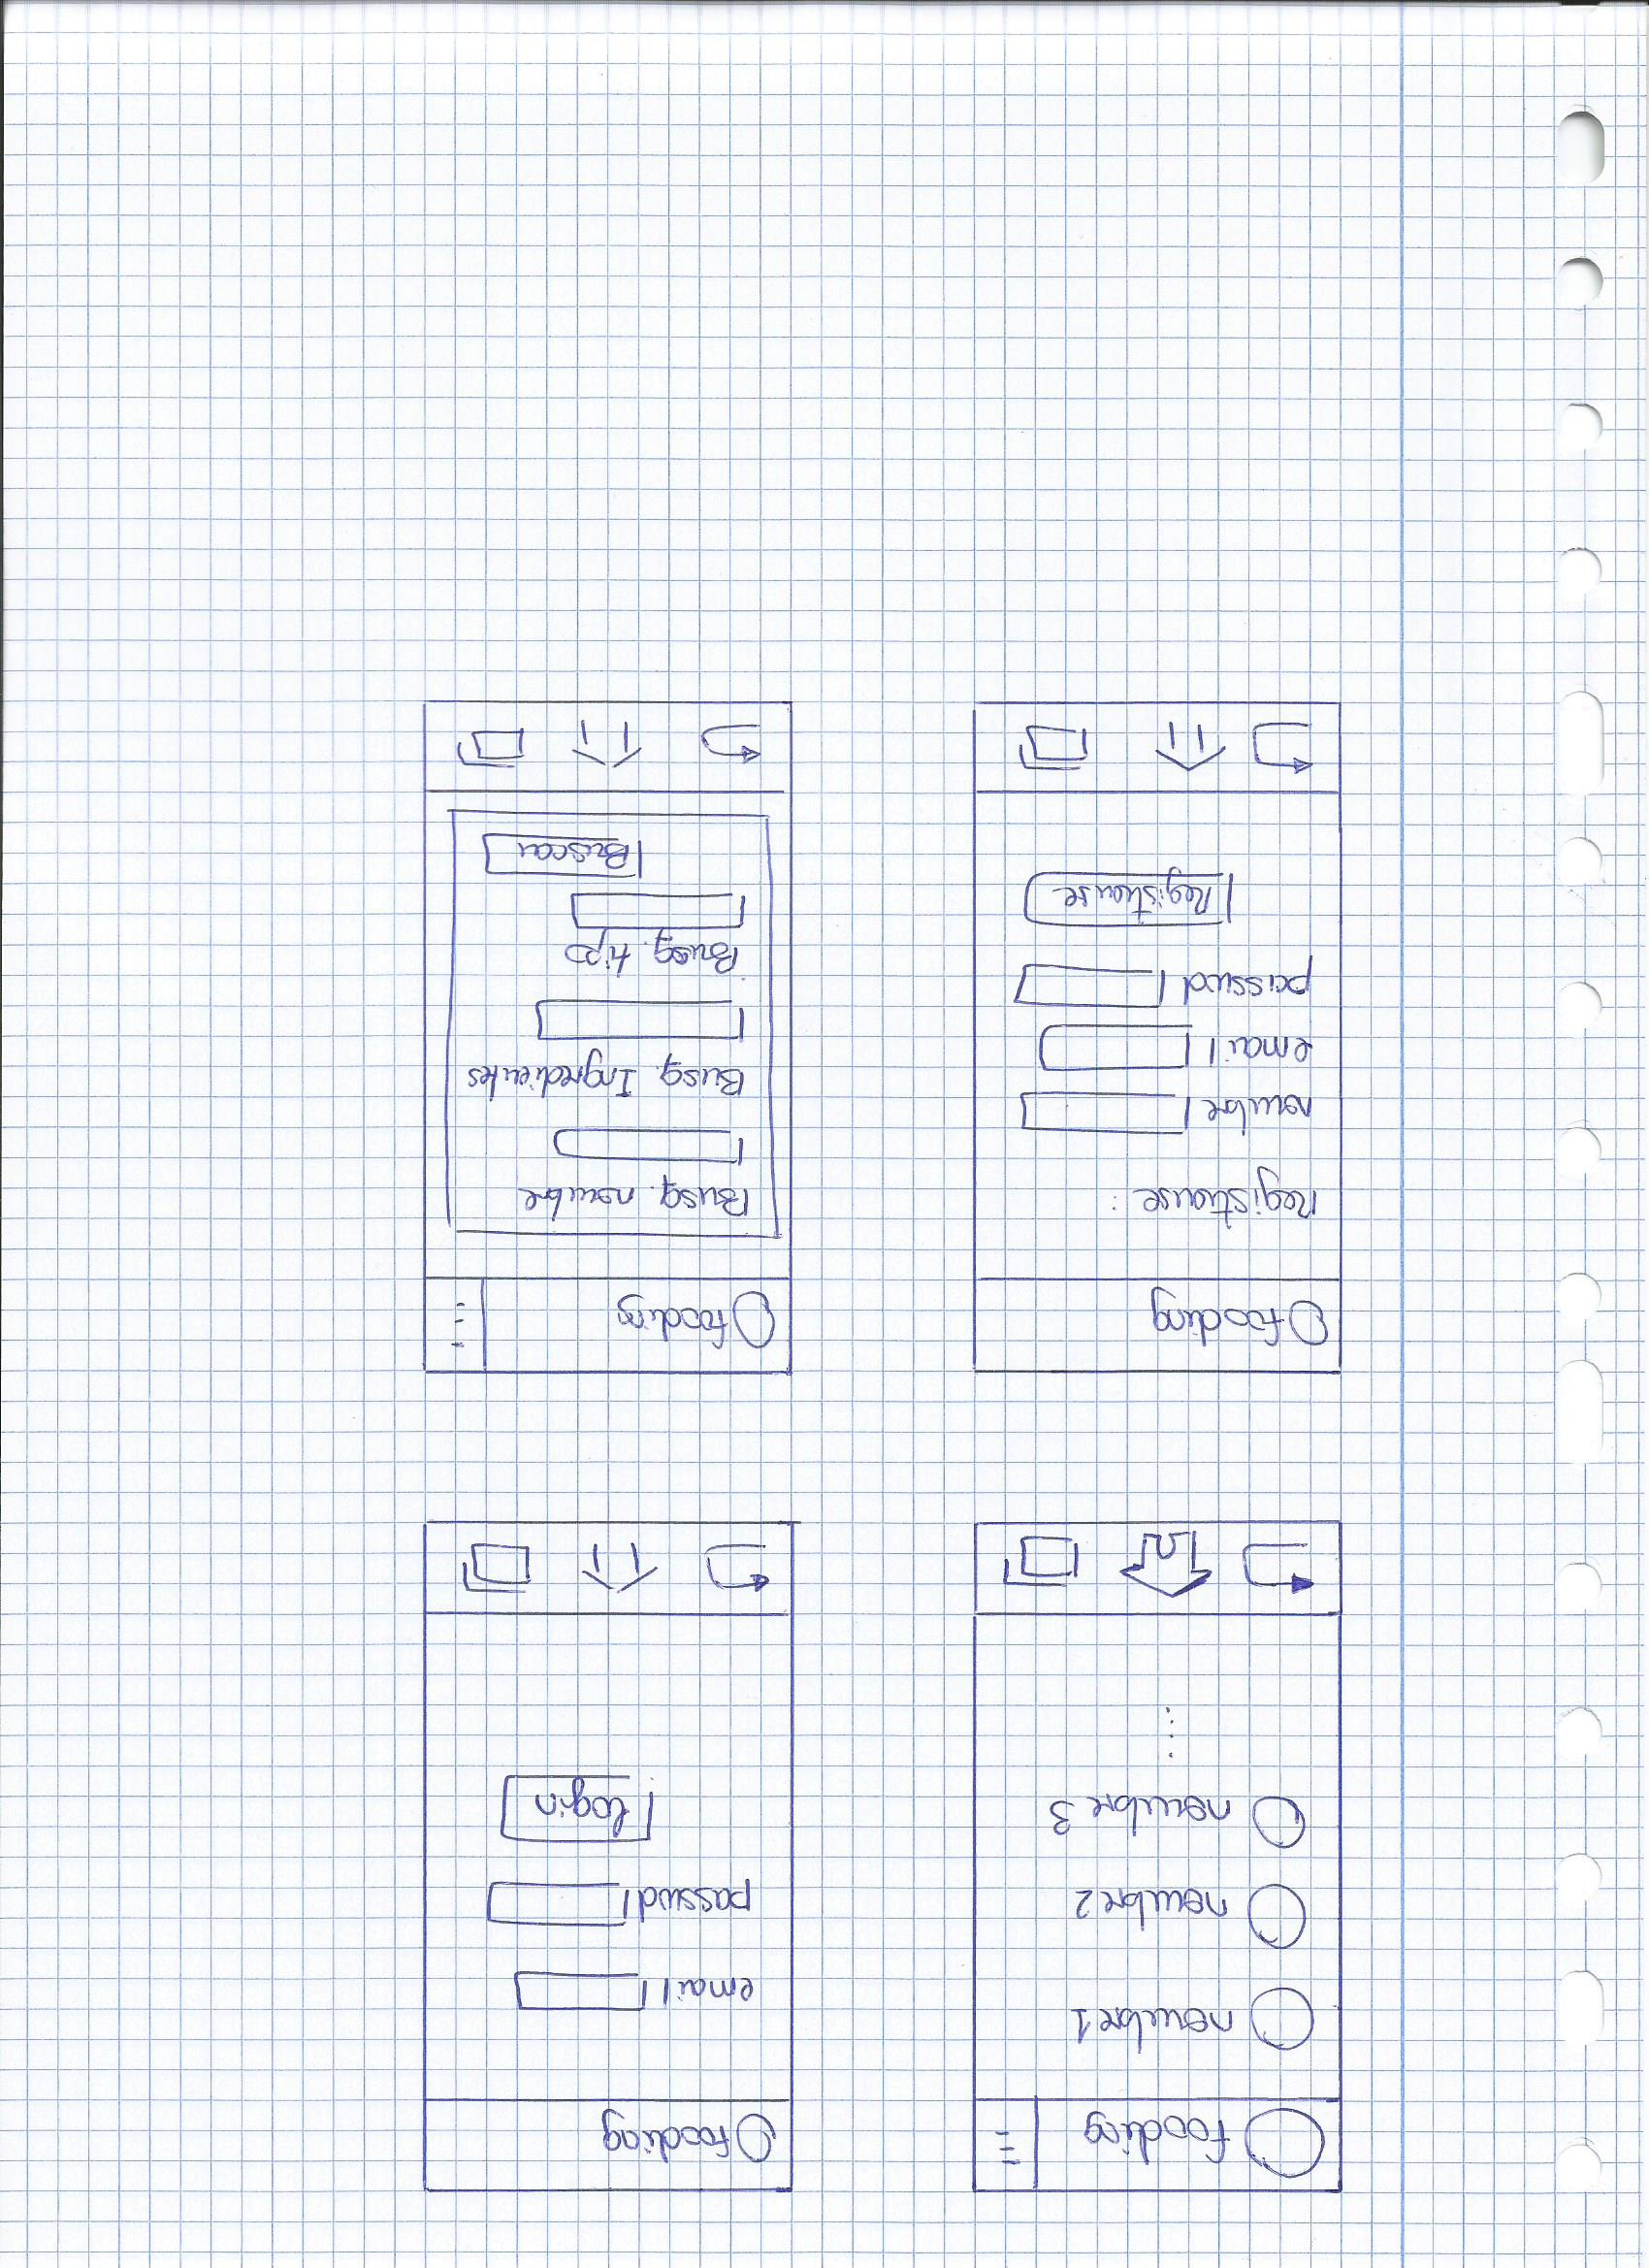 fooding
nombre 1
nombre 2
nombre 3
fooding
email
passwd
login
fooding
Registrarse:
nombre
email
passwd
Registrarse
fooding
Busq. nombre
Busq. Ingredientes
Busq. tipo
Buscar